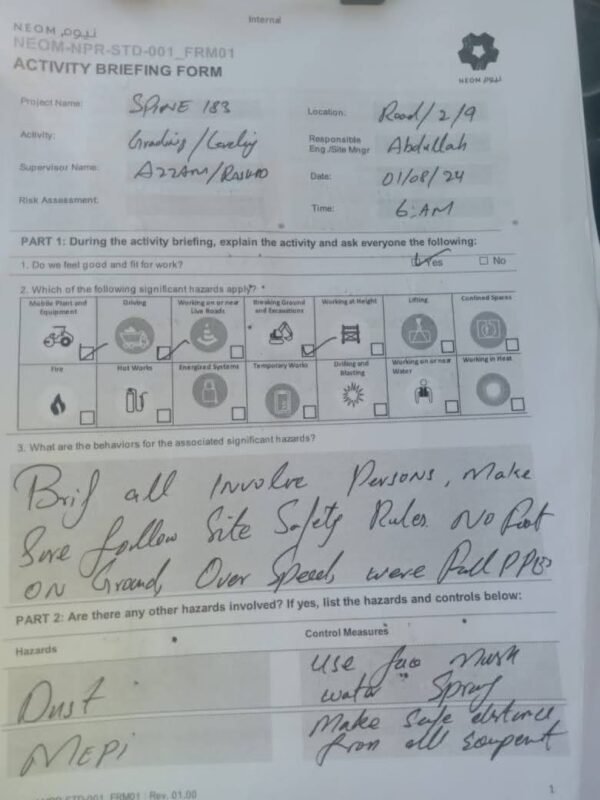 Internal
NEOM نيوم
NEOM-NPR-STD-001_FRM01
ACTIVITY BRIEFING FORM
NEOM نيوم
Project Name: SPINE 183
Location: Road/2/9
Activity: Grading/Leveling
Responsible Eng./Site Mngr Abdullah
Supervisor Name: AZZAM/
Date: 01/08/24
Risk Assessment:
Time: 6:AM
PART 1: During the activity briefing, explain the activity and ask everyone the following:
1. Do we feel good and fit for work? Yes No
2. Which of the following significant hazards apply?
Mobile Plant and Equipment Driving Working on or near Live Roads Breaking Ground and Excavations Working at Height Lifting Confined Spaces
Fire Hot Works Energized Systems Temporary Works Drilling and Blasting Working on or near Water Working in Heat
3. What are the behaviors for the associated significant hazards?
Brif all Involve Persons, Make
Sure follow Site Safety Rules No Foot
ON Ground, Over Speed, were Full PPEs
PART 2: Are there any other hazards involved? If yes, list the hazards and controls below:
Hazards Control Measures
Dust use face mask
water Spray
MEPI Make safe distance
from all
-STD-001_FRM01 : Rev. 01.00 1